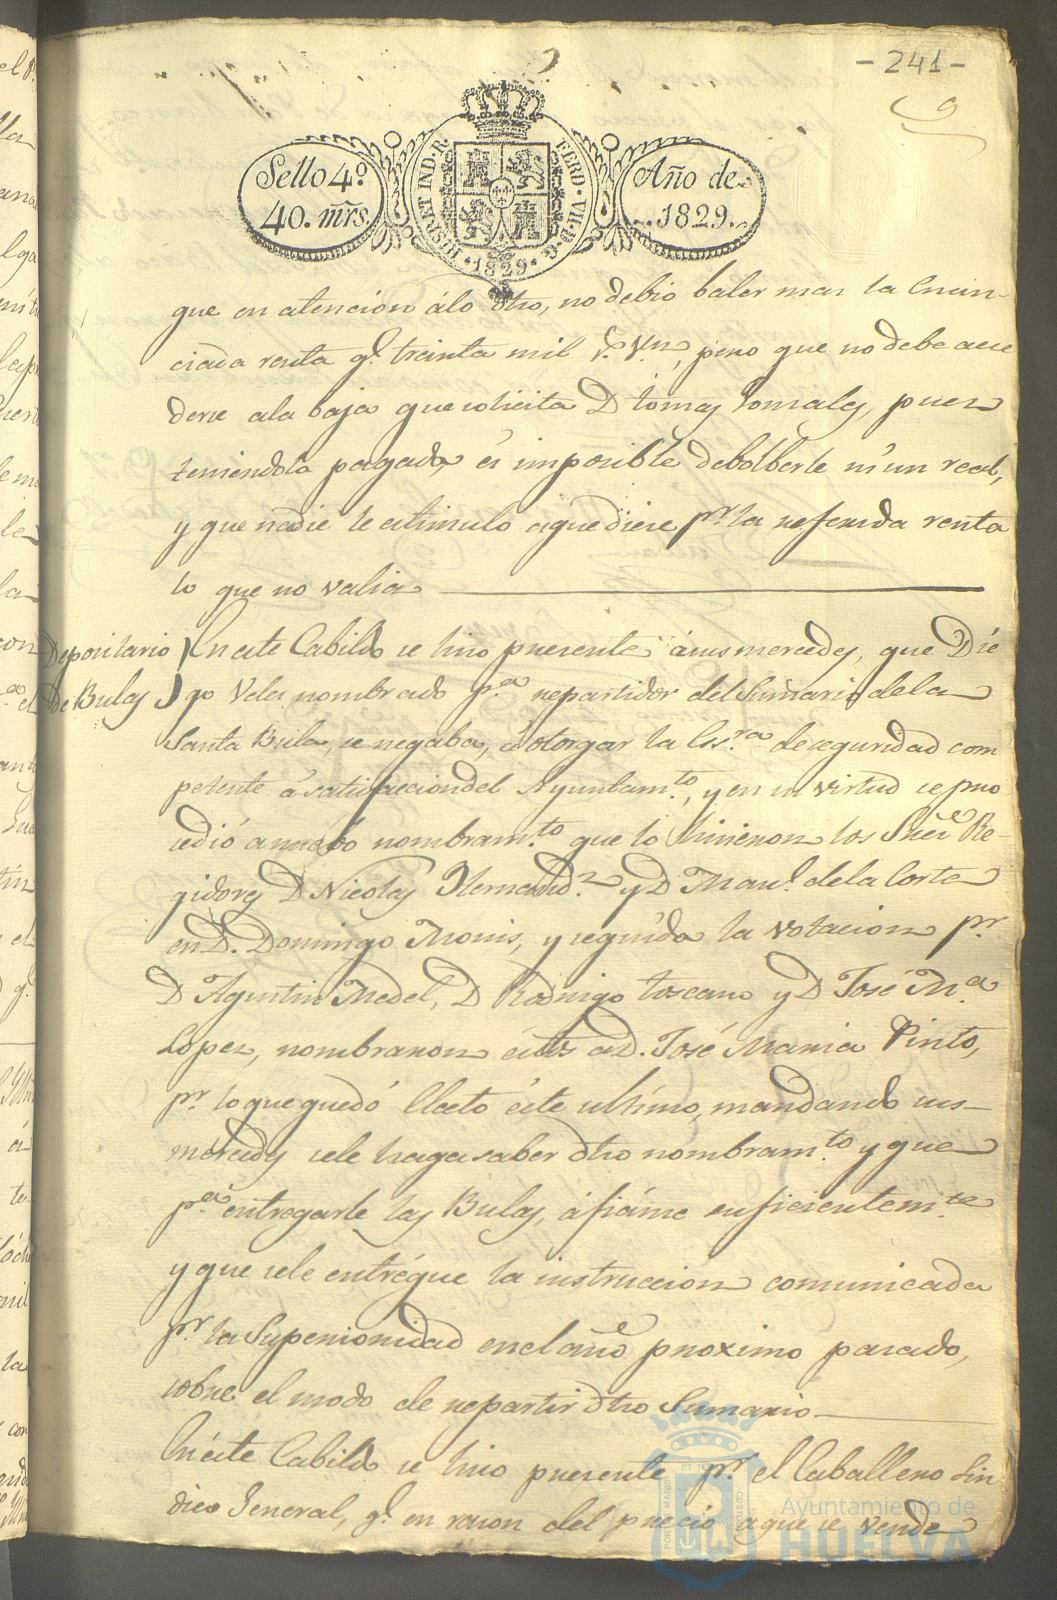 - 241 -
9
Sello 4.º
40. mr̃s.
HISP. ET IND. R. FERD. VII. D. G. 1829
Año de
1829.
que en atencion álo dho, no debió baler mas la Enun-
ciada renta q.e treinta mil r.s v.n, pero que no debe acce
derse ala baja que solicita D tomas Gonzales, pues
teniendola pagada, es imposible debolberle ni un real,
y que nadie le estimuló aquediese p.r la referida renta
lo que no valia
Depositario
De Bulas
En este Cabildo se hizo presente ásus mercedes, que Die
go Velez nombrado p.a repartidor del Sumario dela
Santa Bula, se negaba, á otorgar la Ess.ra de seguridad com
petente á satisfaccion del Ayuntam.to, y en su virtud se pro
cedió anuebo nombram.to que lo hicieron los Señes Re-
gidores D Nicolas Hernand.z y D Man.l dela Corte
en D. Domingo Monis, y seguida la votacion p.r
D Agustin Medel, D Rodrigo toscano y D José M.a
Lopez, nombraron éstos a D. José Maria Pinto,
p.r lo que quedó Electo éste ultimo, mandando sus
mercedes sele haga saber dho nombram.to y que
p.a entregarle las Bulas, áfiánse suficientem.te
y que sele entrégue la instruccion comunicada
p.r la Superioridad en el año proximo pasado,
sobre el modo de repartir dho Sumario
En éste Cabildo se hizo presente p.r el Caballero Sin
dico General, q.e en razon del precio aque se vende
Ayuntamiento de
HUELVA